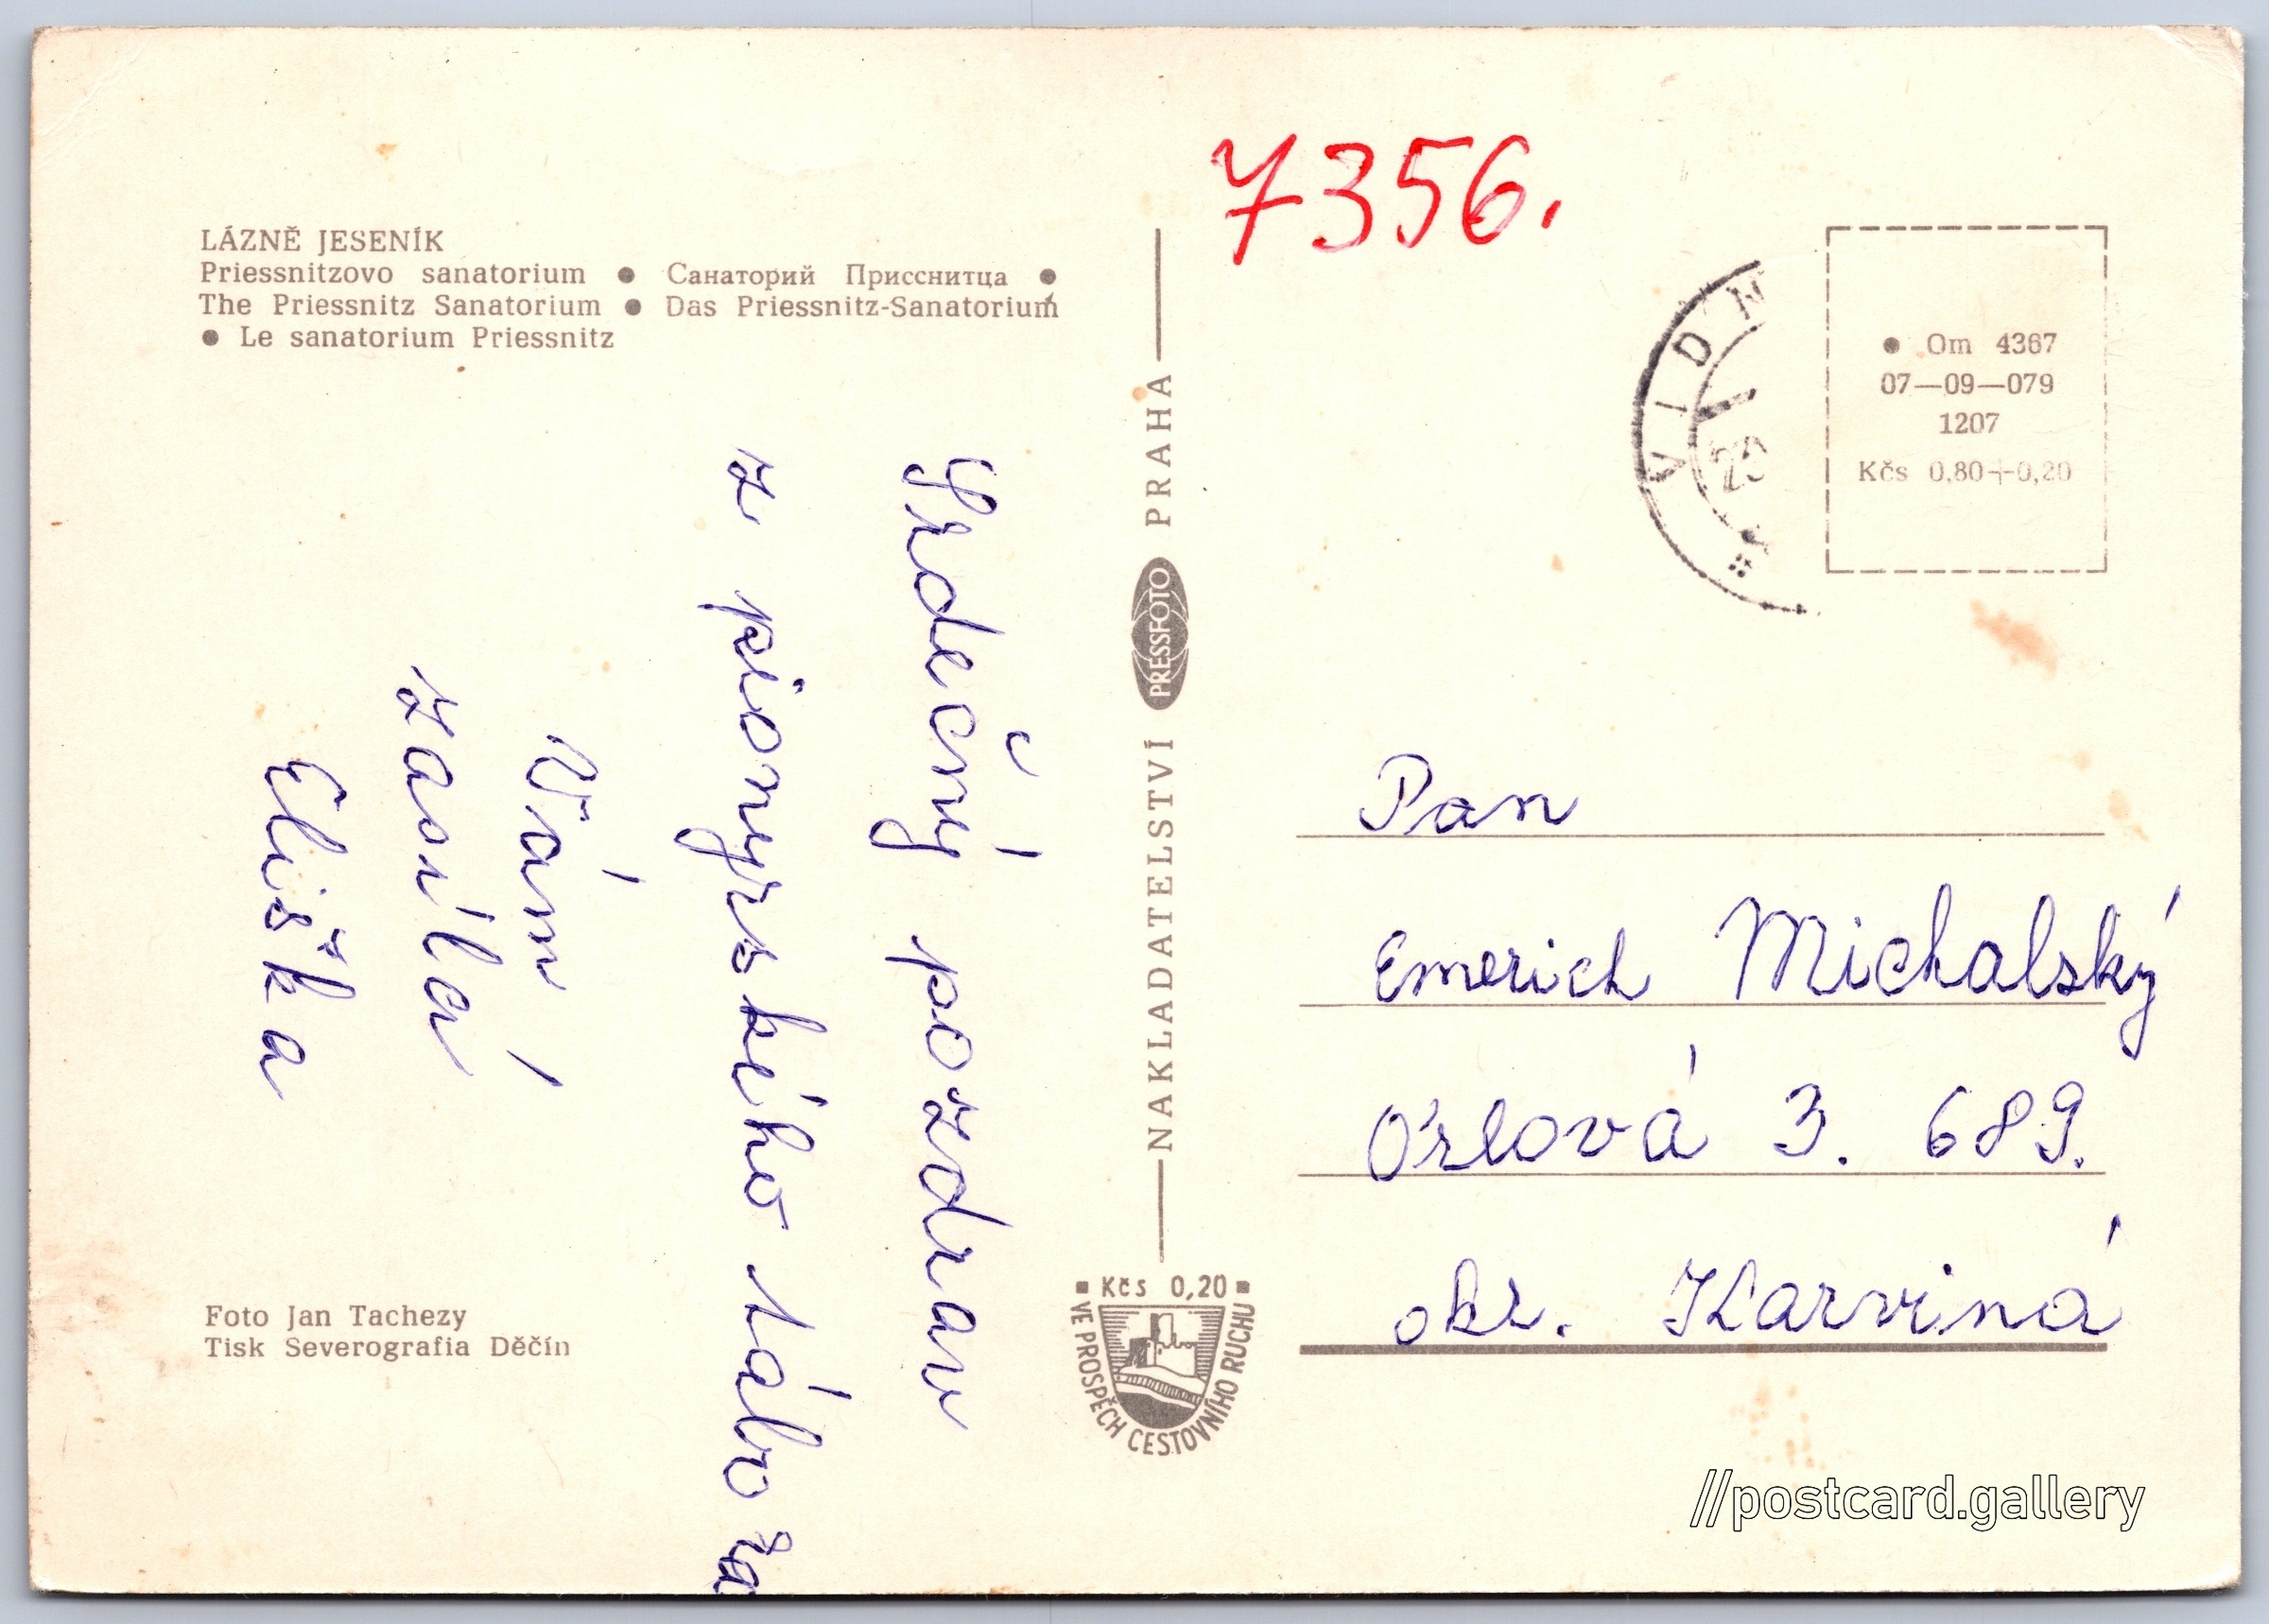 LÁZNĚ JESENÍK
Priessnitzovo sanatorium ● Санаторий Присснитца ●
The Priessnitz Sanatorium ● Das Priessnitz-Sanatorium
● Le sanatorium Priessnitz
Srdečný pozdrav
z pionýrského tábora
Vám
zasílá
Eliška
Foto Jan Tachezy
Tisk Severografia Děčín
NAKLADATELSTVÍ PRESSFOTO PRAHA
Kčs 0,20
VE PROSPĚCH CESTOVNÍHO RUCHU
7356.
VIDN
● Om 4367
07—09—079
1207
Kčs 0,80+0,20
Pan
Emerich Michalský
Orlová 3. 689.
okr. Karviná
//postcard.gallery